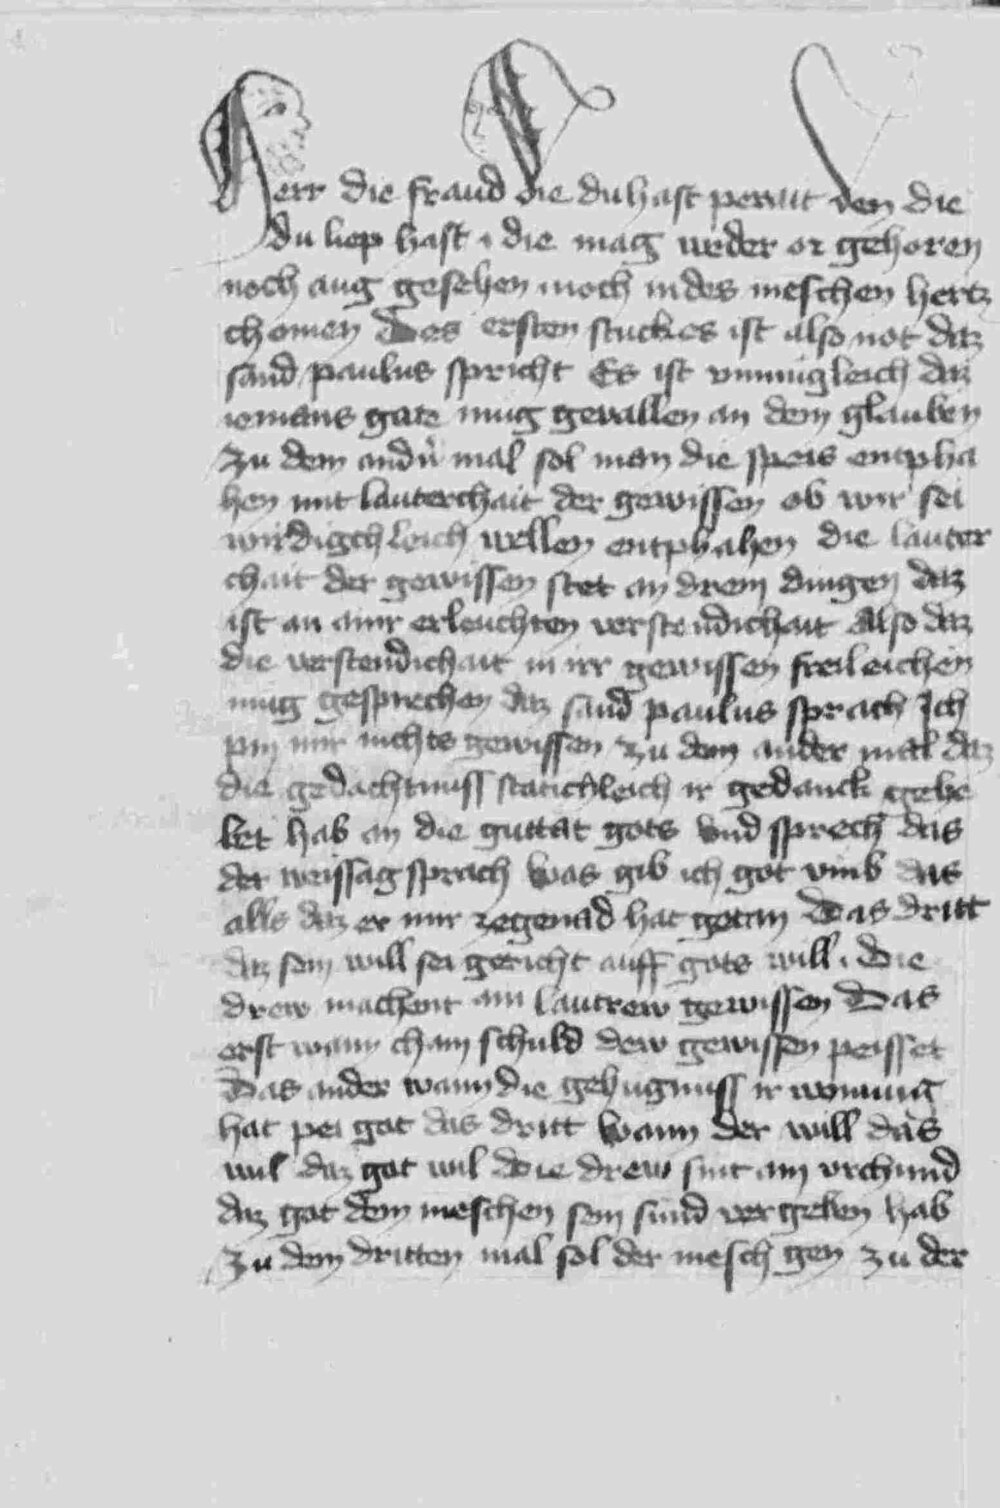 Herr die fraud die du hast perait den die
du liep hast die mag weder or gehoren
noch aug gesehen noch in des meschen hertz
chomen Des ersten stuckes ist also not daz
sand paulus spricht Es ist vnmugleich daz
iemans gote mug gevallen an dem glauben
zu dem andern mal sol man die speis entpha
hen mit lauterchait der gewissen ob wir sei
wirdigchleich wellen entphahen die lauter
chait der gewissen stet an drein dingen daz
ist an ainr erleuchten verstendichait Also daz
die verstendichait in irr gewissen freileichen
mug gesprechen daz sand paulus sprach Ich
pin mir nichts gewissen zu dem ander mal daz
die gedachtnuss statichleich ir gedanck gehe
fet hab an die guttat gots vnd sprech das
der weissag sprach was gib ich got vmb das
alls daz er mir zegenad hat getan Das dritt
daz sein will sei gericht auff gots will . Die
drew machent ain lautrew gewissen Das
erst wann chain schuld dew gewissen peisset
Das ander wann die gehugnuss ir wonung
hat pei got das dritt wann der will das
wil daz got wil die drew sint ain vrchund
daz got dem meschen sein sund vergeben hab
Zu dem dritten mal sol der mesch gen zu der